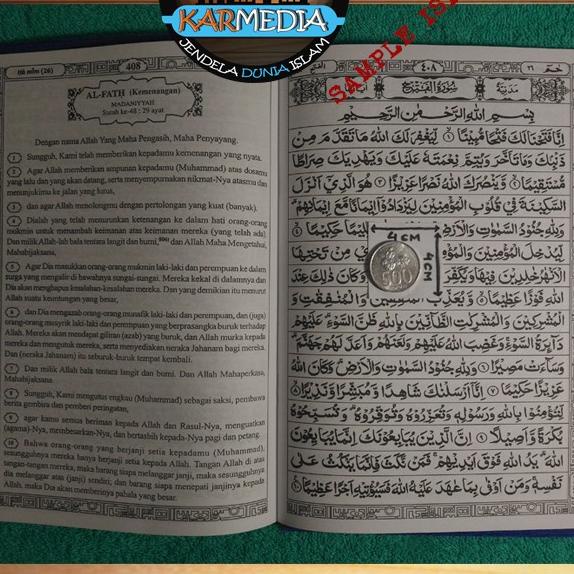 KARMEDIA
JENDELA DUNIA ISLAM
SAMPLE ISI
Hâ mîm (26)
408
AL-FATḤ (Kemenangan)
MADANIYYAH
Surah ke-48 : 29 ayat
Dengan nama Allah Yang Maha Pengasih, Maha Penyayang.
1 Sungguh, Kami telah memberikan kepadamu kemenangan yang nyata.
2 Agar Allah memberikan ampunan kepadamu (Muhammad) atas dosamu
yang lalu dan yang akan datang, serta menyempurnakan nikmat-Nya atasmu dan
menunjukimu ke jalan yang lurus,
3 dan agar Allah menolongmu dengan pertolongan yang kuat (banyak).
4 Dialah yang telah menurunkan ketenangan ke dalam hati orang-orang
mukmin untuk menambah keimanan atas keimanan mereka (yang telah ada).
Dan milik Allah-lah bala tentara langit dan bumi, dan Allah Maha Mengetahui,
Mahabijaksana.
5 Agar Dia masukkan orang-orang mukmin laki-laki dan perempuan ke dalam
surga yang mengalir di bawahnya sungai-sungai. Mereka kekal di dalamnya dan
Dia akan menghapus kesalahan-kesalahan mereka. Dan yang demikian itu menurut
Allah suatu keuntungan yang besar,
6 dan Dia mengazab orang-orang munafik laki-laki dan perempuan, dan (juga)
orang-orang musyrik laki-laki dan perempuan yang berprasangka buruk terhadap
Allah. Mereka akan mendapat giliran (azab) yang buruk, dan Allah murka kepada
mereka dan mengutuk mereka, serta menyediakan neraka Jahanam bagi mereka.
Dan (neraka Jahanam) itu seburuk-buruk tempat kembali.
7 Dan milik Allah bala tentara langit dan bumi. Dan Allah Mahaperkasa,
Mahabijaksana.
8 Sungguh, Kami mengutus engkau (Muhammad) sebagai saksi, pembawa
berita gembira dan pemberi peringatan,
9 agar kamu semua beriman kepada Allah dan Rasul-Nya, menguatkan
(agama)-Nya, membesarkan-Nya, dan bertasbih kepada-Nya pagi dan petang.
10 Bahwa orang-orang yang berjanji setia kepadamu (Muhammad),
sesungguhnya mereka hanya berjanji setia kepada Allah. Tangan Allah di atas
tangan-tangan mereka, maka barang siapa melanggar janji, maka sesungguhnya
dia melanggar atas (janji) sendiri; dan barang siapa menepati janjinya kepada
Allah, maka Dia akan memberinya pahala yang besar.
الفتح
٤٠٨
حم ٢٦
سورة الفتح
مدنية
بِسْمِ اللهِ الرَّحْمٰنِ الرَّحِيْمِ
اِنَّا فَتَحْنَا لَكَ فَتْحًا مُّبِيْنًا ١ لِّيَغْفِرَ لَكَ اللهُ مَا تَقَدَّمَ مِنْ
ذَنْۢبِكَ وَمَا تَاَخَّرَ وَيُتِمَّ نِعْمَتَهُ عَلَيْكَ وَيَهْدِيَكَ صِرَاطًا
مُّسْتَقِيْمًا ٢ وَّيَنْصُرَكَ اللهُ نَصْرًا عَزِيْزًا ٣ هُوَ الَّذِيْٓ اَنْزَلَ
السَّكِيْنَةَ فِيْ قُلُوْبِ الْمُؤْمِنِيْنَ لِيَزْدَادُوْٓا اِيْمَانًا مَّعَ اِيْمَانِهِمْ
وَلِلّٰهِ جُنُوْدُ السَّمٰوٰتِ عَلِيْمًا حَكِيْمًا ٤
لِّيُدْخِلَ الْمُؤْمِنِيْنَ وَالْمُؤْ مِنْ تَحْتِهَا
الْاَنْهٰرُ خٰلِدِيْنَ فِيْهَا وَيُكَفِّرَ وَكَانَ ذٰلِكَ عِنْدَ
اللهِ فَوْزًا عَظِيْمًا ٥ وَّيُعَذِّبَ الْمُنٰفِقِيْنَ وَالْمُنٰفِقٰتِ وَ
الْمُشْرِكِيْنَ وَالْمُشْرِكٰتِ الظَّاۤنِّيْنَ بِاللهِ ظَنَّ السَّوْءِ عَلَيْهِمْ
دَاۤىِٕرَةُ السَّوْءِ وَغَضِبَ اللهُ عَلَيْهِمْ وَلَعَنَهُمْ وَاَعَدَّ لَهُمْ جَهَنَّمَ
وَسَاۤءَتْ مَصِيْرًا ٦ وَلِلّٰهِ جُنُوْدُ السَّمٰوٰتِ وَالْاَرْضِ وَكَانَ اللهُ
عَزِيْزًا حَكِيْمًا ٧ اِنَّآ اَرْسَلْنٰكَ شَاهِدًا وَّمُبَشِّرًا وَّنَذِيْرًا ٨
لِّتُؤْمِنُوْا بِاللهِ وَرَسُوْلِهٖ وَتُعَزِّرُوْهُ وَتُوَقِّرُوْهُ وَتُسَبِّحُوْهُ
بُكْرَةً وَّاَصِيْلًا ٩ اِنَّ الَّذِيْنَ يُبَايِعُوْنَكَ اِنَّمَا يُبَايِعُوْنَ
اللهَ يَدُ اللهِ فَوْقَ اَيْدِيْهِمْ فَمَنْ نَّكَثَ فَاِنَّمَا يَنْكُثُ عَلٰى
نَفْسِهٖ وَمَنْ اَوْفٰى بِمَا عٰهَدَ عَلَيْهُ اللهَ فَسَيُؤْتِيْهِ اَجْرًا عَظِيْمًا ١٠
4 CM
4 CM
500